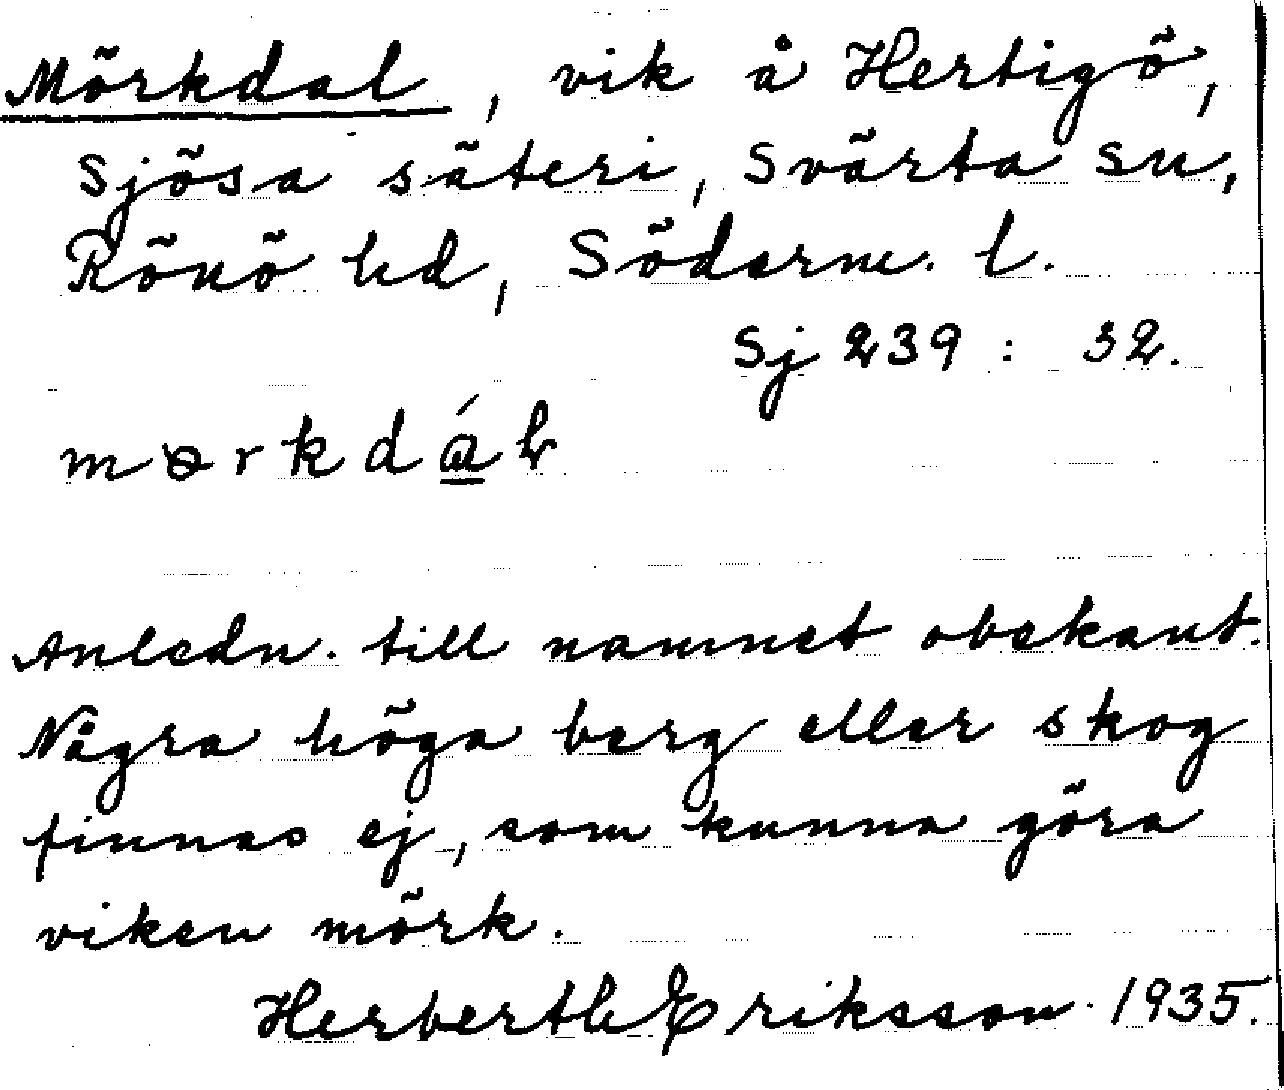 Mörkdal, vik å Hertigö,
Sjösa säteri, Svärta sn,
Rönö hd, Söderm. l.
Sj 239 : 32.
Anledn. till namnet obekant.
Några höga berg eller skog
finnas ej, som kunna göra
viken mörk.
Herberth Eriksson 1935.